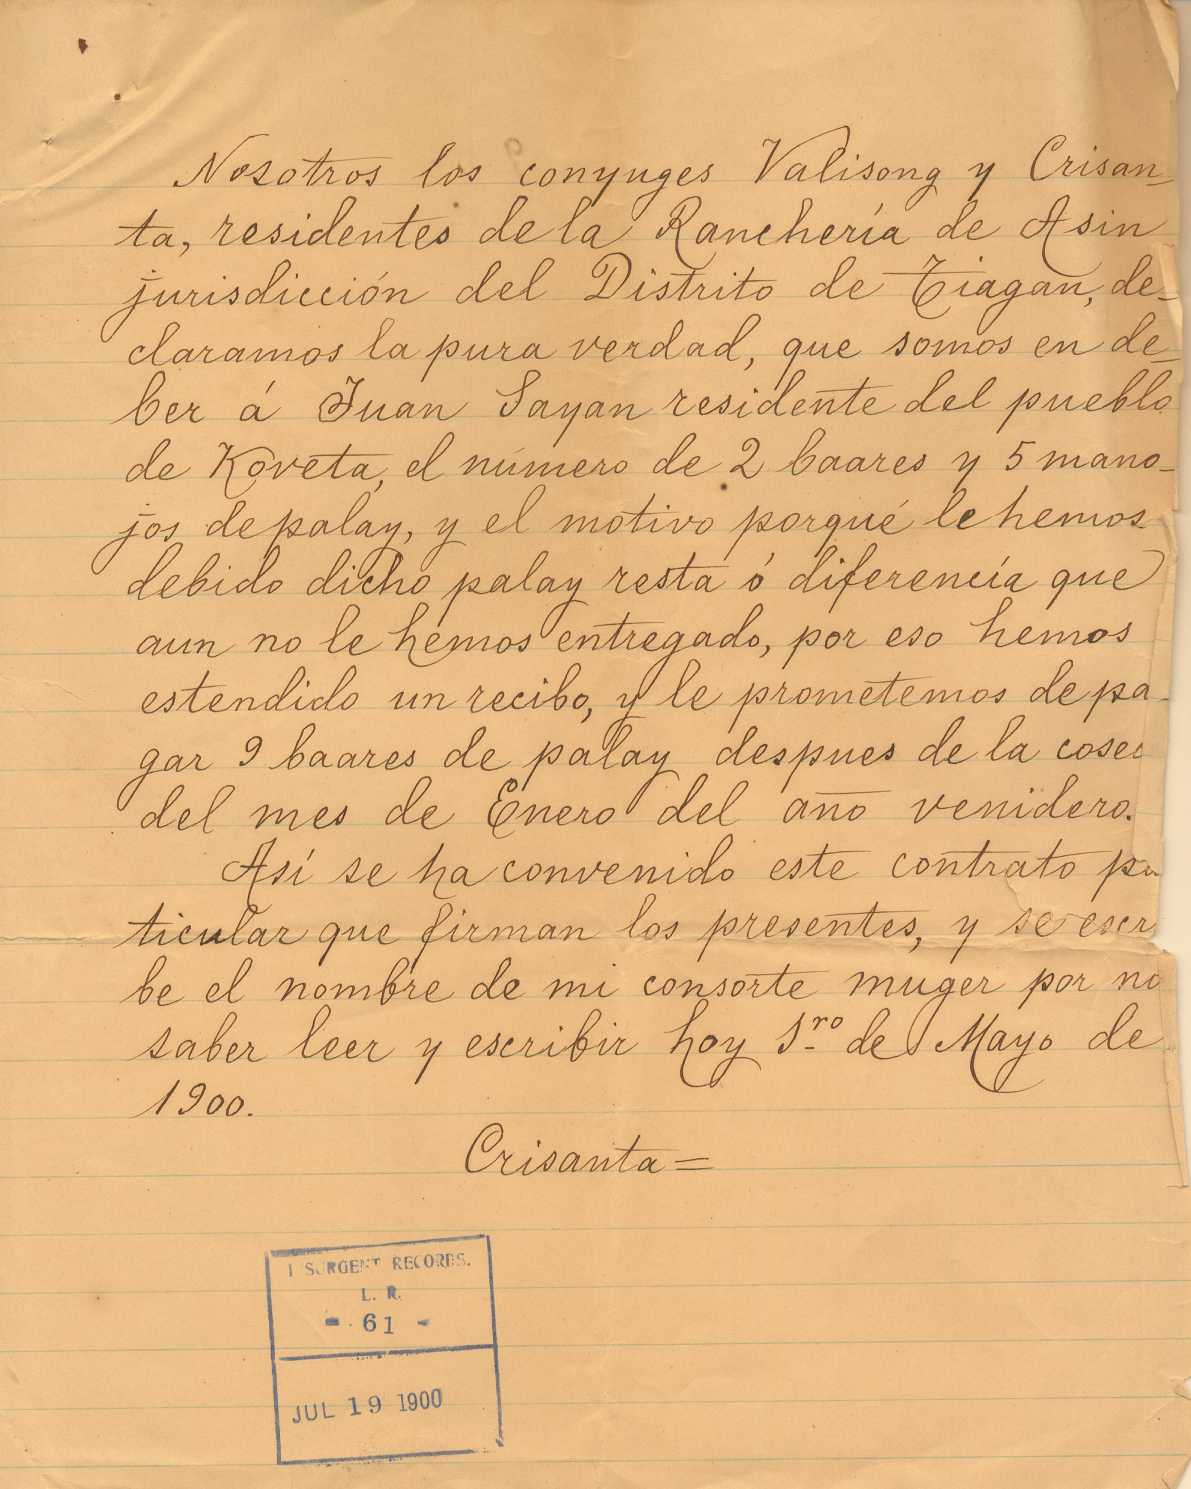 Nosotros los conyuges Valisong y Crisan-
ta, residentes de la Ranchería de Asin
jurisdicción del Distrito de Tiagan, de-
claramos la pura verdad, que somos en de-
ber á Juan Sayan residente del pueblo
de Koveta, el número de 2 baares y 5 mano-
jos de palay, y el motivo porqué le hemos
debido dicho palay resta ó diferencía que
aun no le hemos entregado, por eso hemos
estendido un recibo, y le prometemos de pa-
gar 9 baares de palay despues de la cosec
del mes de Enero del año venidero.
Así se ha convenido este contrato pa
ticular que firman los presentes, y se escr
be el nombre de mi consorte muger por no
saber leer y escribir hoy 1.ro de Mayo de
1900.
Crisanta=
I SURGENT RECORDS.
L. R.
- 61 -
JUL 19 1900